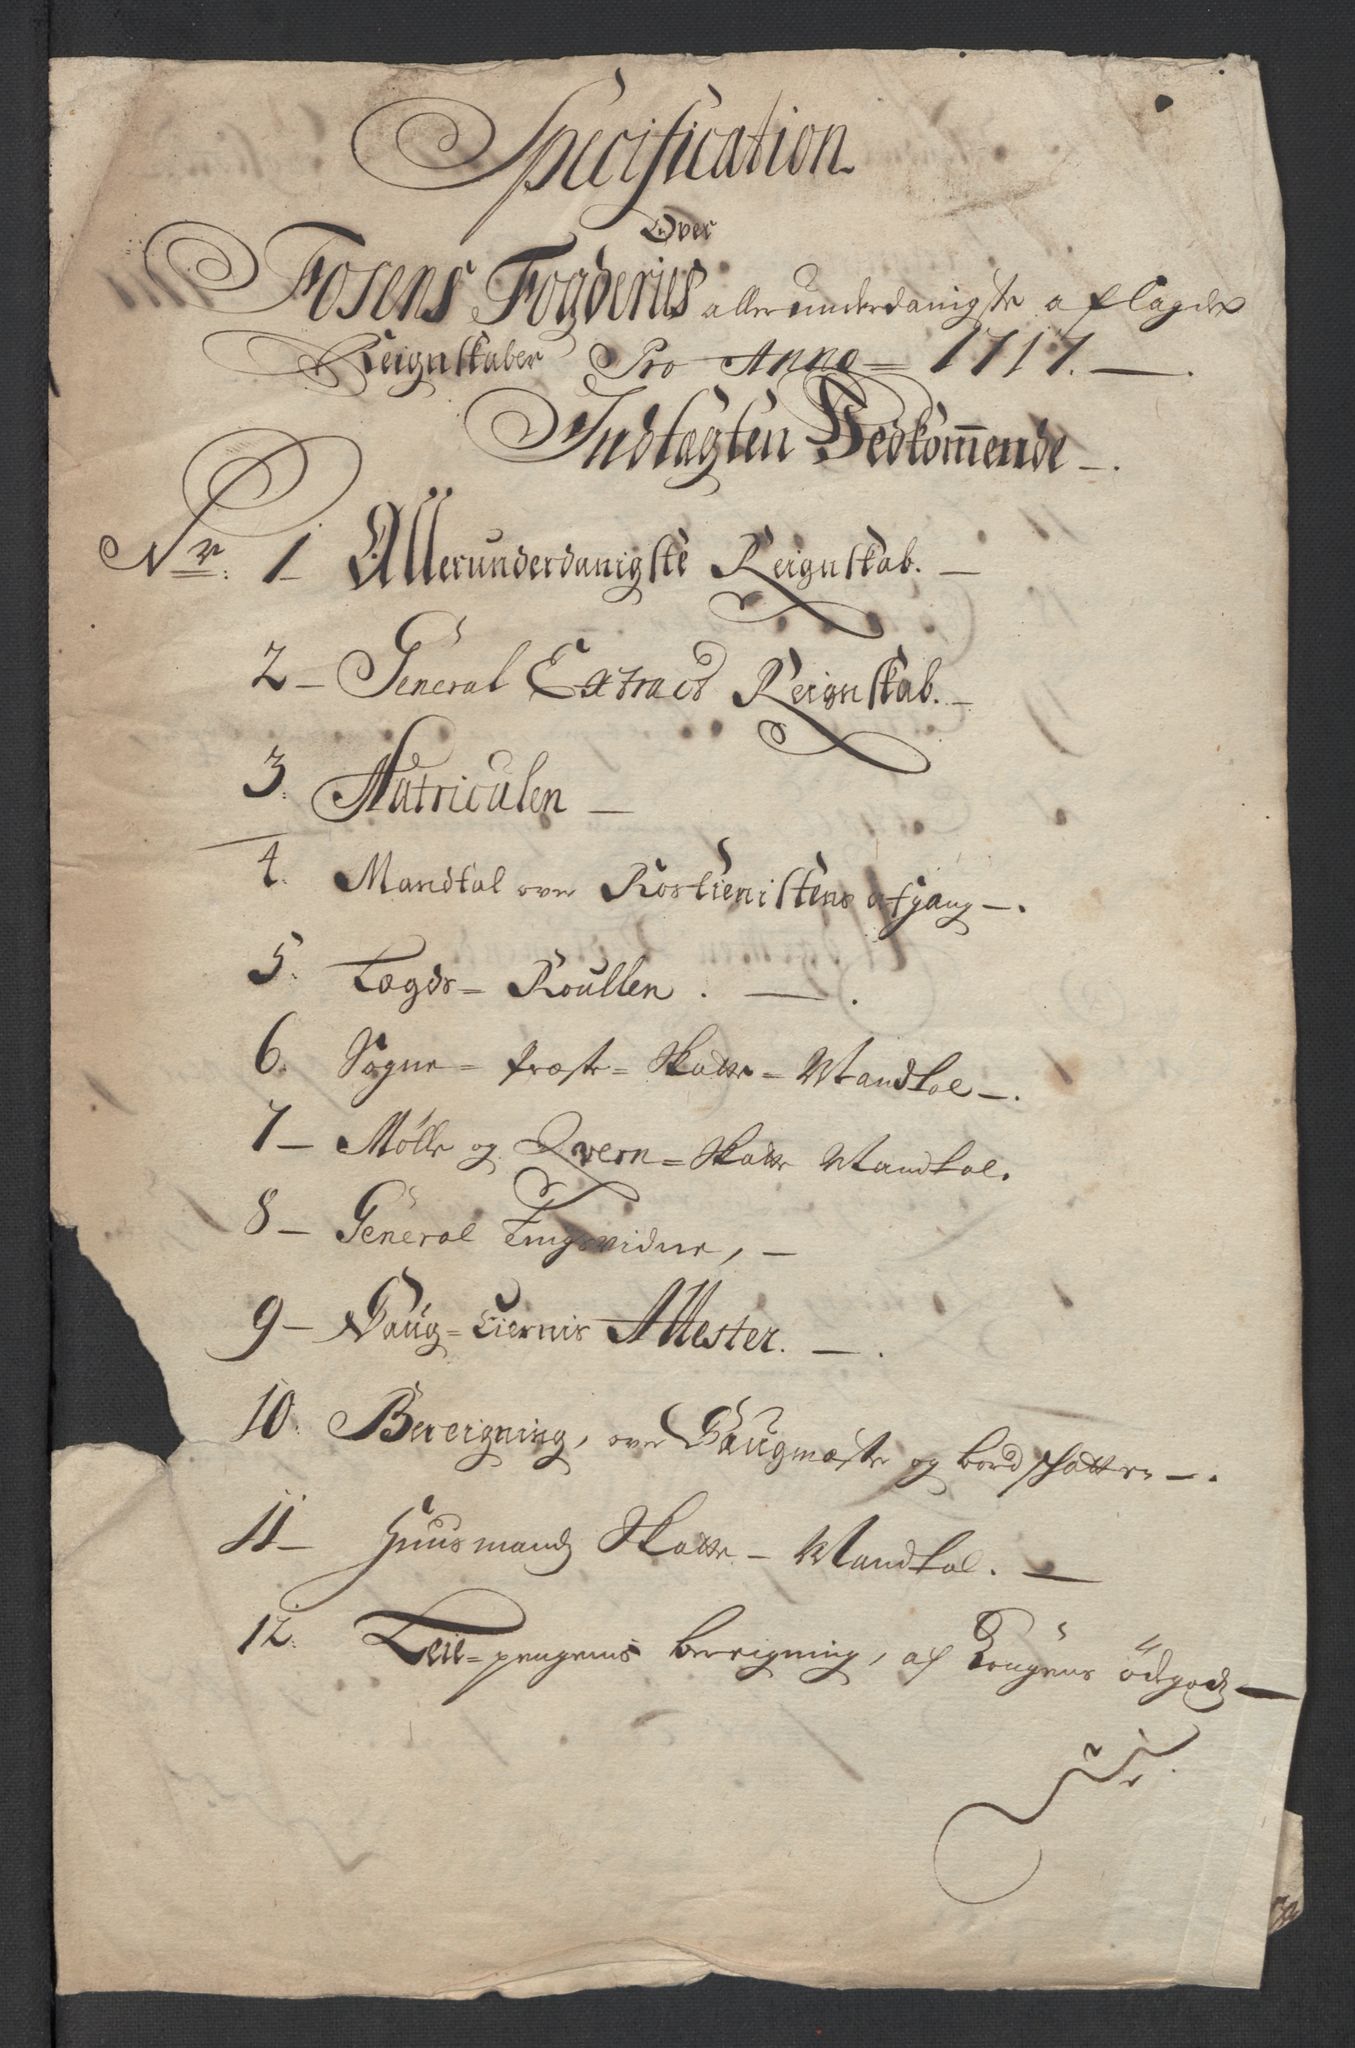 Specification
Over
Fosens Fogderies allerunderdanigste aflagde
Reignskaber Pro Anno = 1717. —
Indtagten Vedkom̅ende —.
Nr. 1 Allerunderdanigste Reignskab. —
2 — General Extract Reignskab. —
3. Matriculen —
4. Mandtal over Rostienistens afgang —.
5. Lægds = Roullen. — .
6. Sogne = Præste = Skatte = Mandtal —.
7 — Mølle og Qvern = Skatte Mandtal.
8 — General Tingsvidne, —
9 — Saug = Eiernis Attester. — .
10. Bereigning, over Saugmæste og bord skatten —.
11 — Huusmands Skatte — Mandtal. —
12. Leie = pengenis bereigning, af Kongens ödegods —